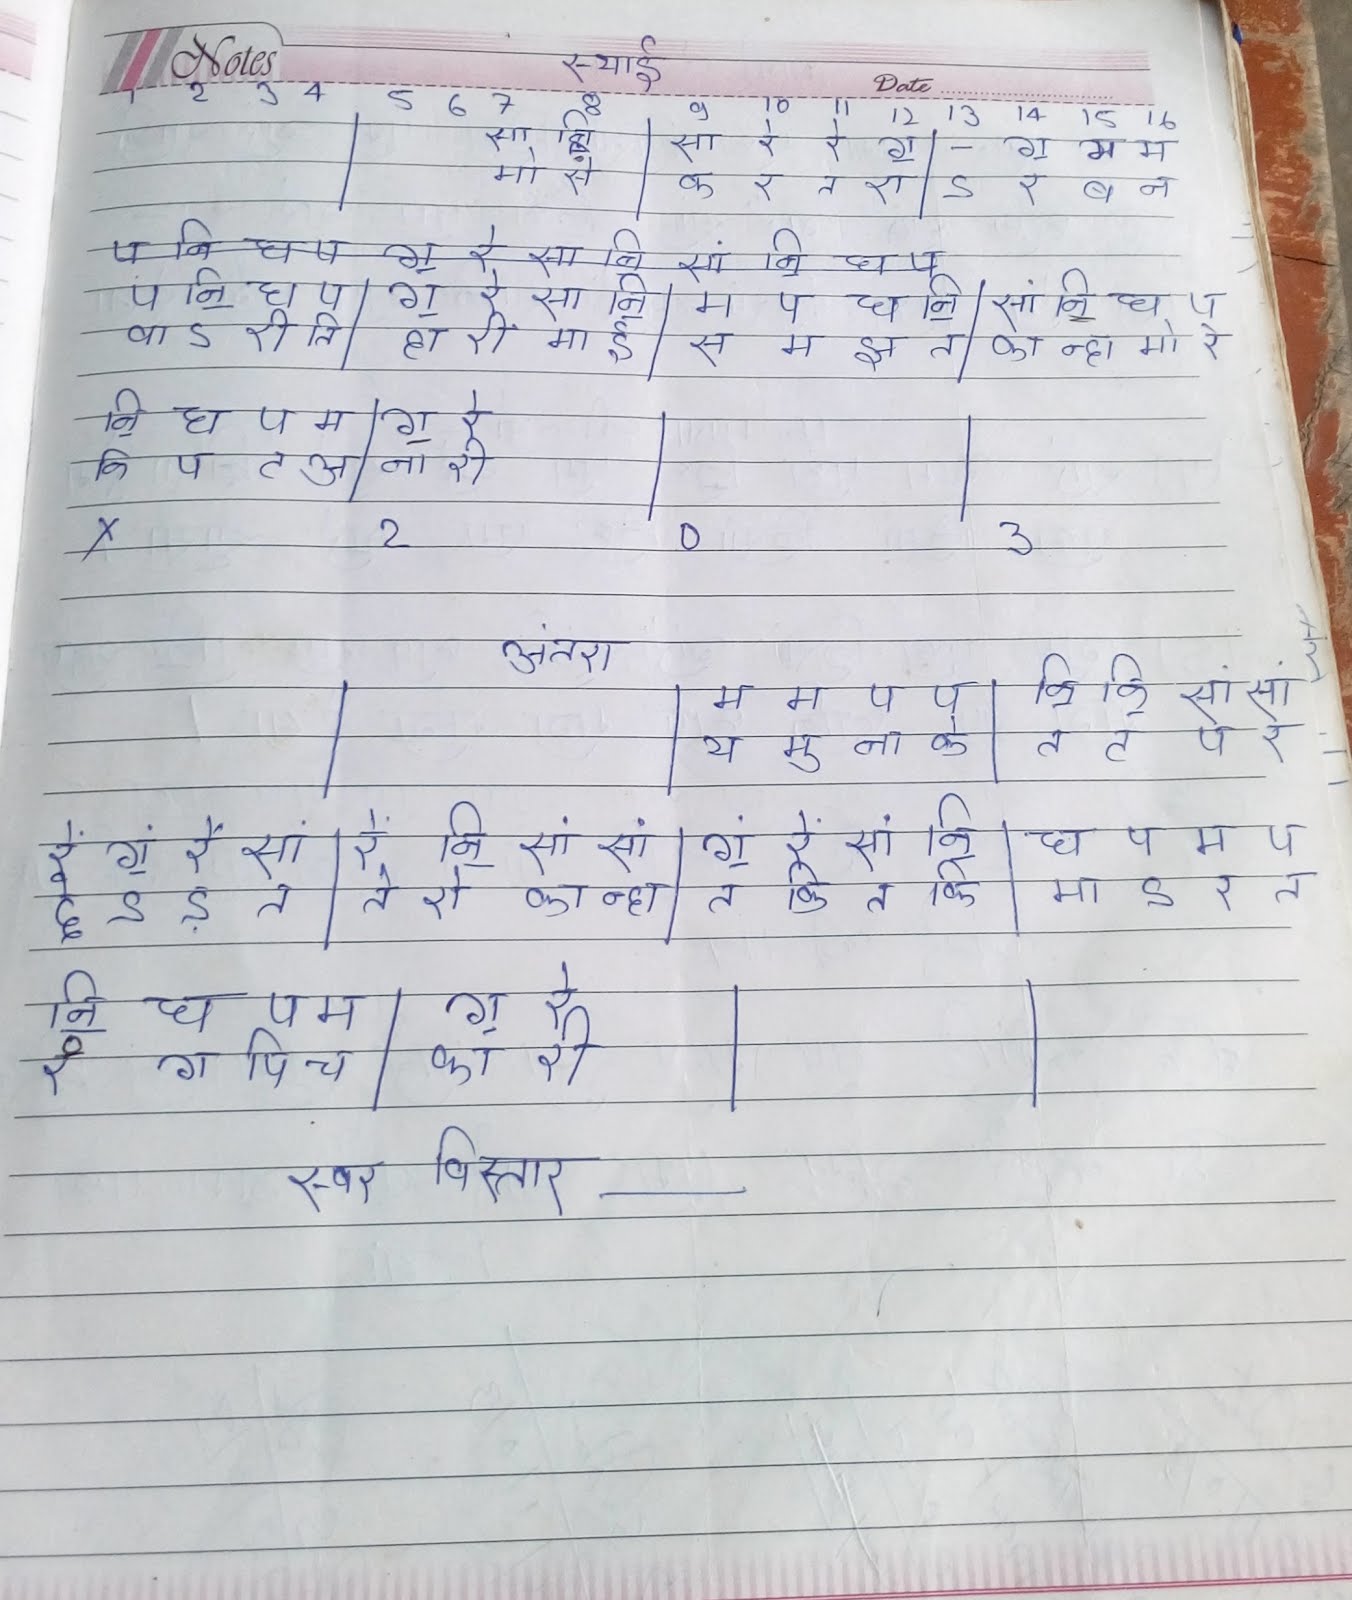 Notes
स्थाई
Date
1 2 3 4 5 6 7 8 9 10 11 12 13 14 15 16
सा नि॒ | सा रे रे ग॒ | - ग॒ म म
मो से | क र त रा | ऽ र ब न
प नि ध प ग॒ रे सा नि सां नि॒ ध प
प नि॒ ध प | ग॒ रे सा नि॒ | म प ध नि॒ | सां नि॒ ध प
वा ऽ री ति | हा री माई | स म झ त | का न्हा मो रे
नि॒ ध प म | ग॒ रे
नि प ट अ | ना री
X 2 0 3
अंतरा
म म प प | नि॒ नि॒ सां सां
य मु ना के | त ट पे रे
रें गं॒ रें सां | रें नि॒ सां सां | गं॒ रें सां नि॒ | ध प म प
छे ऽ ड़ त | ते रो का न्हा | त कि त कि | मा ऽ र त
नि॒ ध प म | ग॒ रे
रं ग पि च | का री
स्वर विस्तार ———